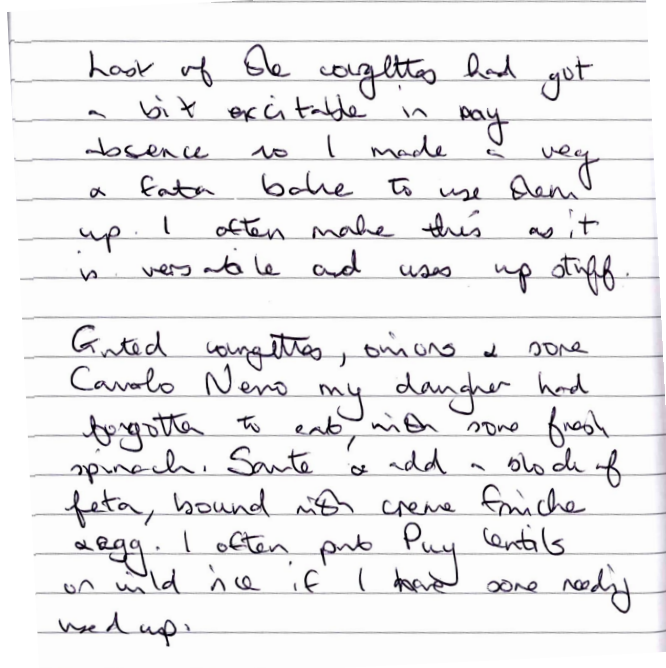 Last of the courgettes had got
a bit excitable in my
absence so I made a veg
& feta bake to use them
up. I often make this as it
is versatile and uses up stuff.
Grated courgettes, onions & some
Cavolo Nero my daughter had
forgotten to eat, with some fresh
spinach. Sauté & add a block of
feta, bound with creme fraiche
& egg. I often put Puy lentils
or wild rice if I have some needing
used up.